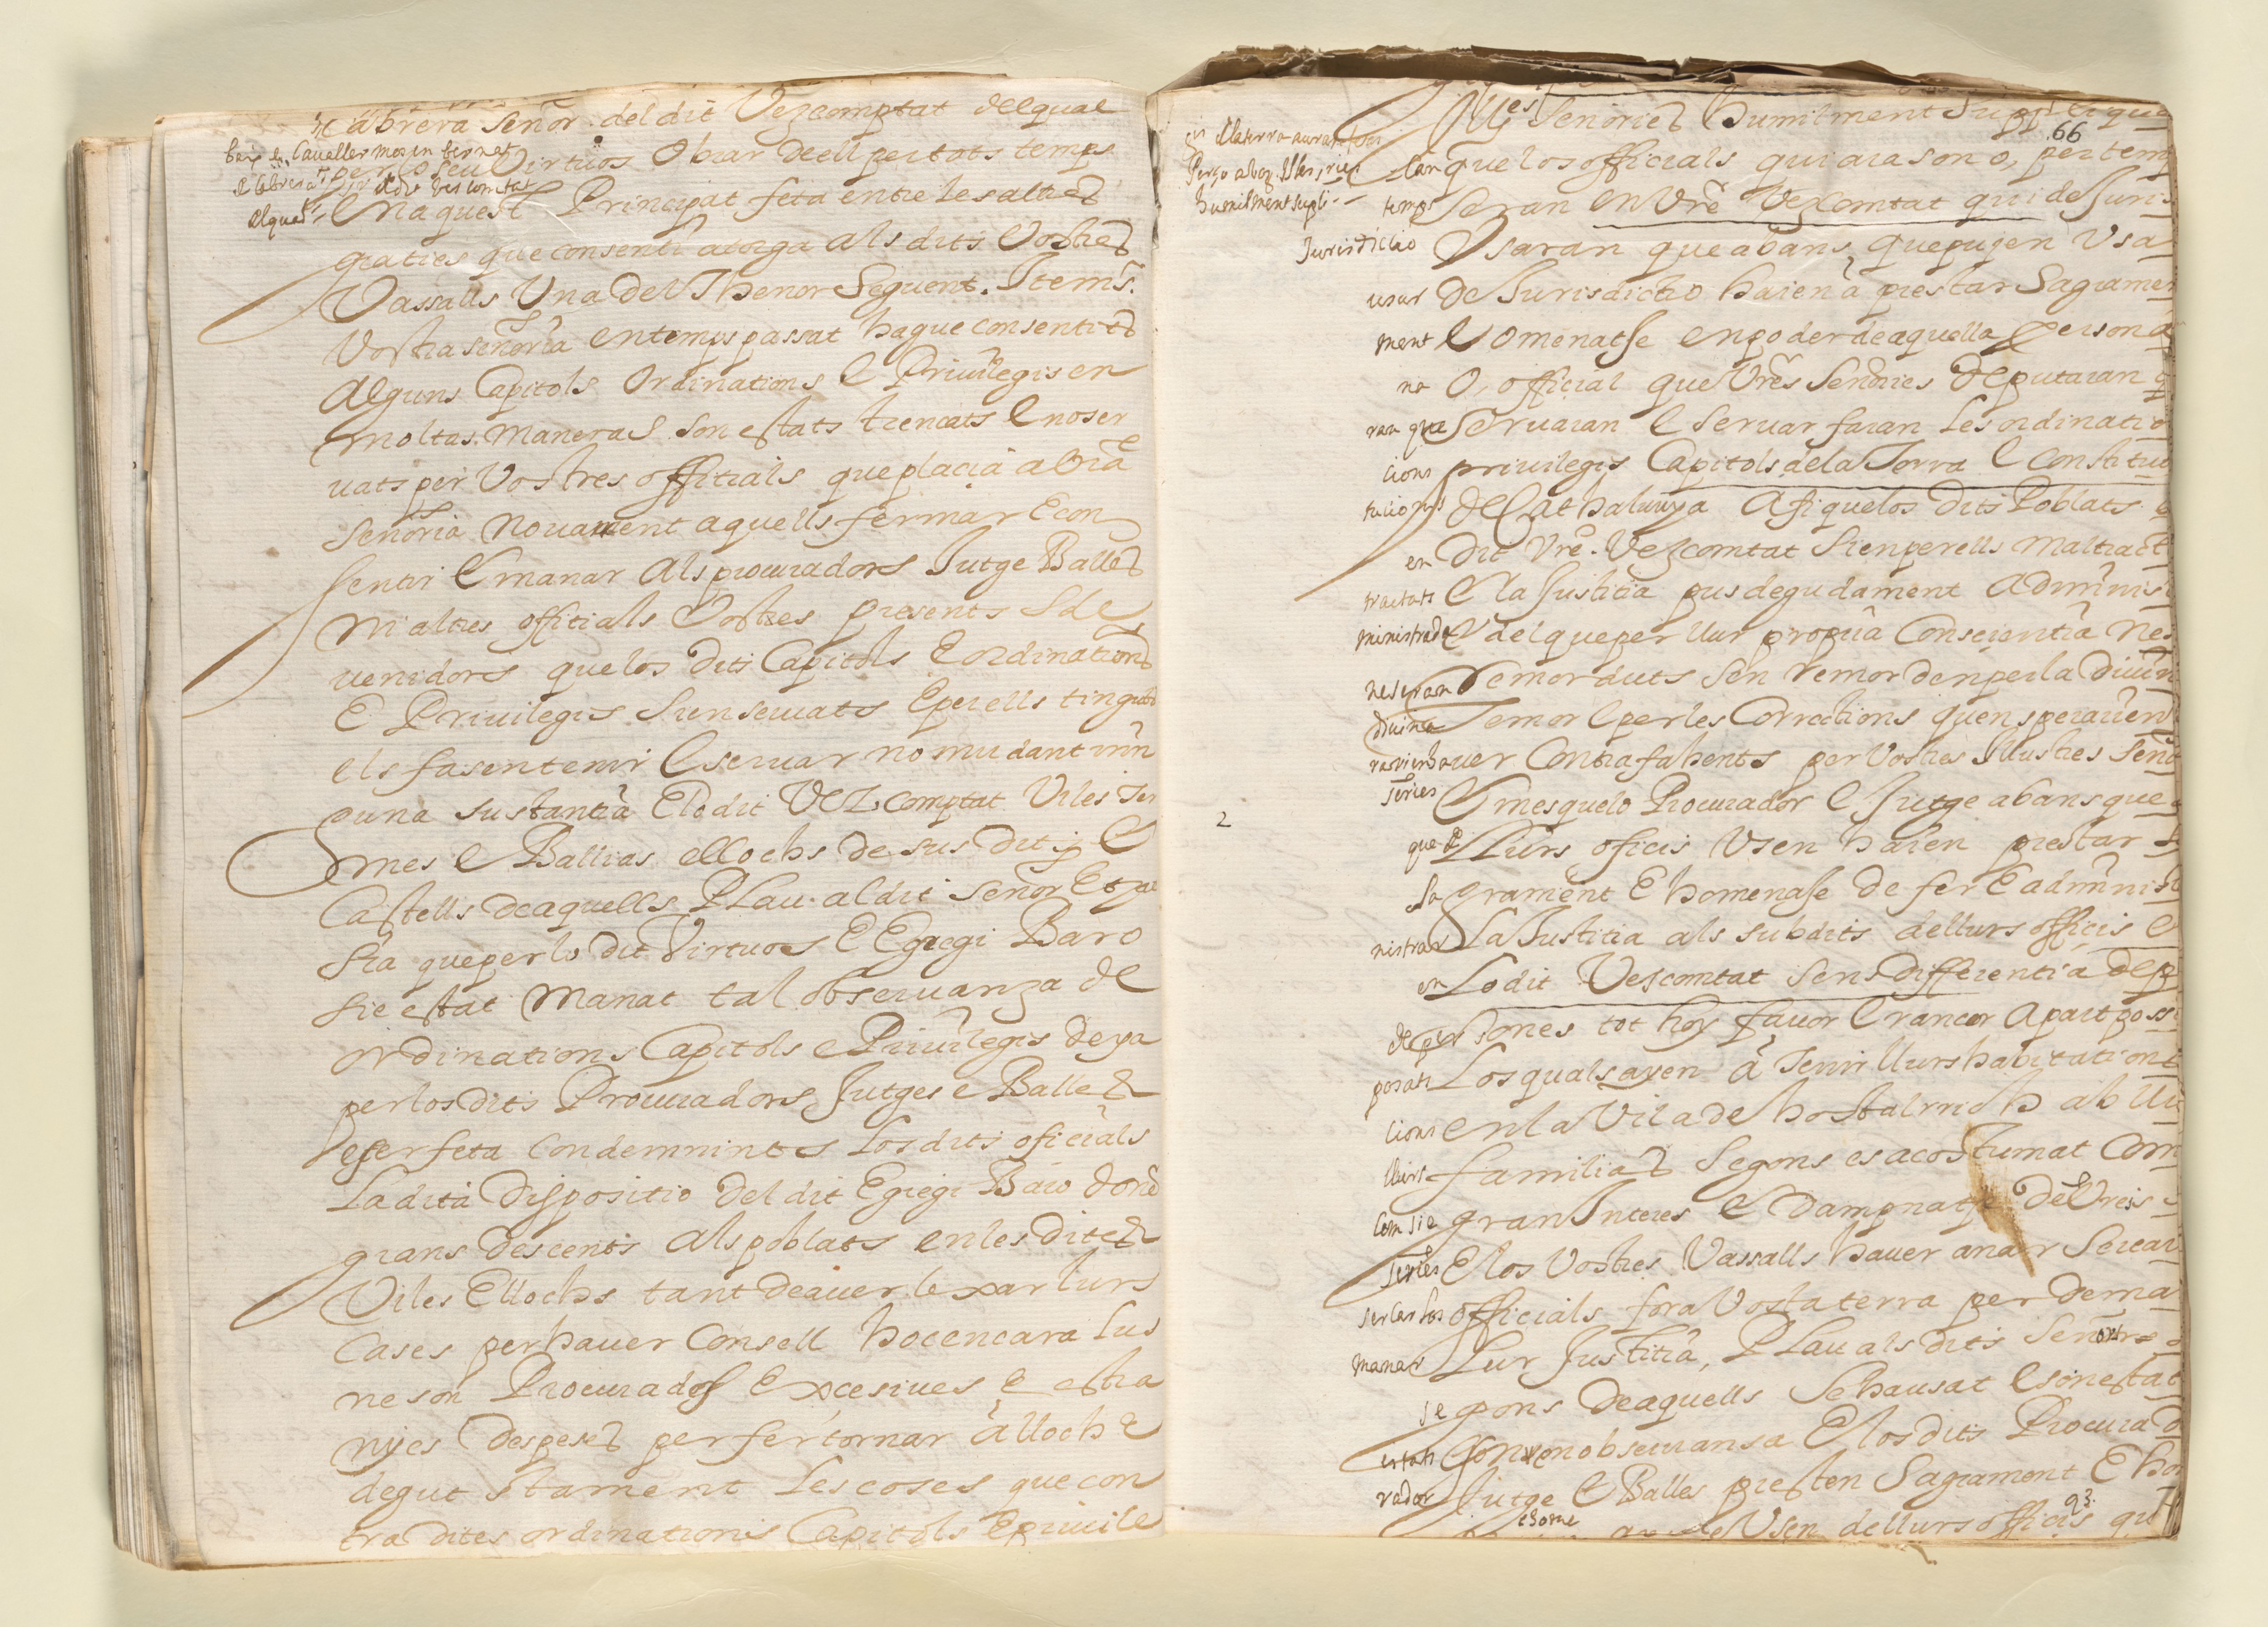 Cabrera señor del dit Vezcomptat delqual
baro e Cavaller mosen bernat
per lo seu Virtuos Obrar de ell per tots temps
de Cabrera sr. del dit Vescomtat
elqual
En aquest Principat feta entre les altres
graties que consenti atorga als dits Vostres
Vassalls Una del Thenor Seguent. Item sr.
Vostra señoria en temps passat hague consentits
Alguns Capitols Ordinations e Privilegis en
moltas maneras son estats trencats e no ser
vats per Vostres offitials que placia a Vra
Señoria Novament aquells fermar e con
sentir e manar als procuradors Jutge Balles
ni altres offitials Vostres presents e de
venidors que los dits Capitols e ordinations
e Privilegis sien servats e per ells tinguts
els fasen tenir e servar no mudant nin
guna sustantia e lo dit Vez comptat Viles Ter
mes e Ballias e llochs de sus dits e
Castells de aquells Plau al dit señor e que
sia que per lo dit Virtuos e Egregi Baro
sie estat manat tal observanza de
ordinations Capitols e Privilegis de ya
per los dits Procuradors Jutges e Balles
e per feta condemnints los dits oficials
La dita dispositio del dit Egregi Baro don
grans descents als poblats en les dites
Viles e llochs tant de aver lexar lurs
Cases per haver Consell hoc encara lus
ne son Procurades excesives e estra
nyes despeses per fer tornar a lloch e
degut stament les coses que con
tra dites ordinations Capitols e privile
66
en
Perço ab
humilment supli
Vres Señories humilment Suppliquen
can que los officials qui ara son o, per temps
temps Seran en Vre Vezcomtat qui de Juris
Jurisdictio Usaran que abans que pujen Usar
usar de Jurisdictio haien a prestar Sagrament
ment e omenatse en poder de aquella persona
na O, official que Vres Señories deputaran que
ran que Servaran e servar faran les ordinatio
cions privilegis Capitols de la Terra e Constitu
tucions de Cathalunya Afi que los dits Poblats
en dit Vre. Vezcomtat sien per ells maltractats
tractats e la Justitia pus degudament adminis
ministrada e del que per llur propria Conscientia ne
ne seran remorduts sen remorden per la divina
divina Temor e per les Corrections quen speraven
haver Contrafahents per Vostres Illustres Señories
ories E mes que lo Procurador e Jutge abans que
2
que de llurs oficis Usen haien prestar
sagrament e homenase de fer e administ
nistrar La Justitia als subdits de llurs officis e
en Lo dit Vescomtat sens differentia de per
de per sones tot hoy favor e rancor apart posats
posats Los quals ayen a Tenir llurs habitations
cions en la Vila de hostalrrich ab llurs
llurs familias Segons es acostumat Com
Com sie gran Interes e dampnatse de Vres
series E los Vostres Vassalls haver anar Sercar
sercar los officials fora Vostra terra per dema
manar Lur Justitia, Plau als dits Señors
se gons de aquells Se ha usat e son estat
estats Con en observansa E los dits Procurad
rador Jutge e Balles presten Sagrament e ho
e home
Usen de llurs officis qu
93.